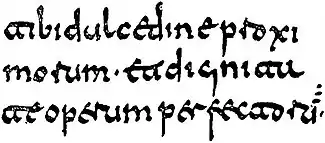 tibi dulcedine proxi
morum · et diginita
te operum perfectoru̅·